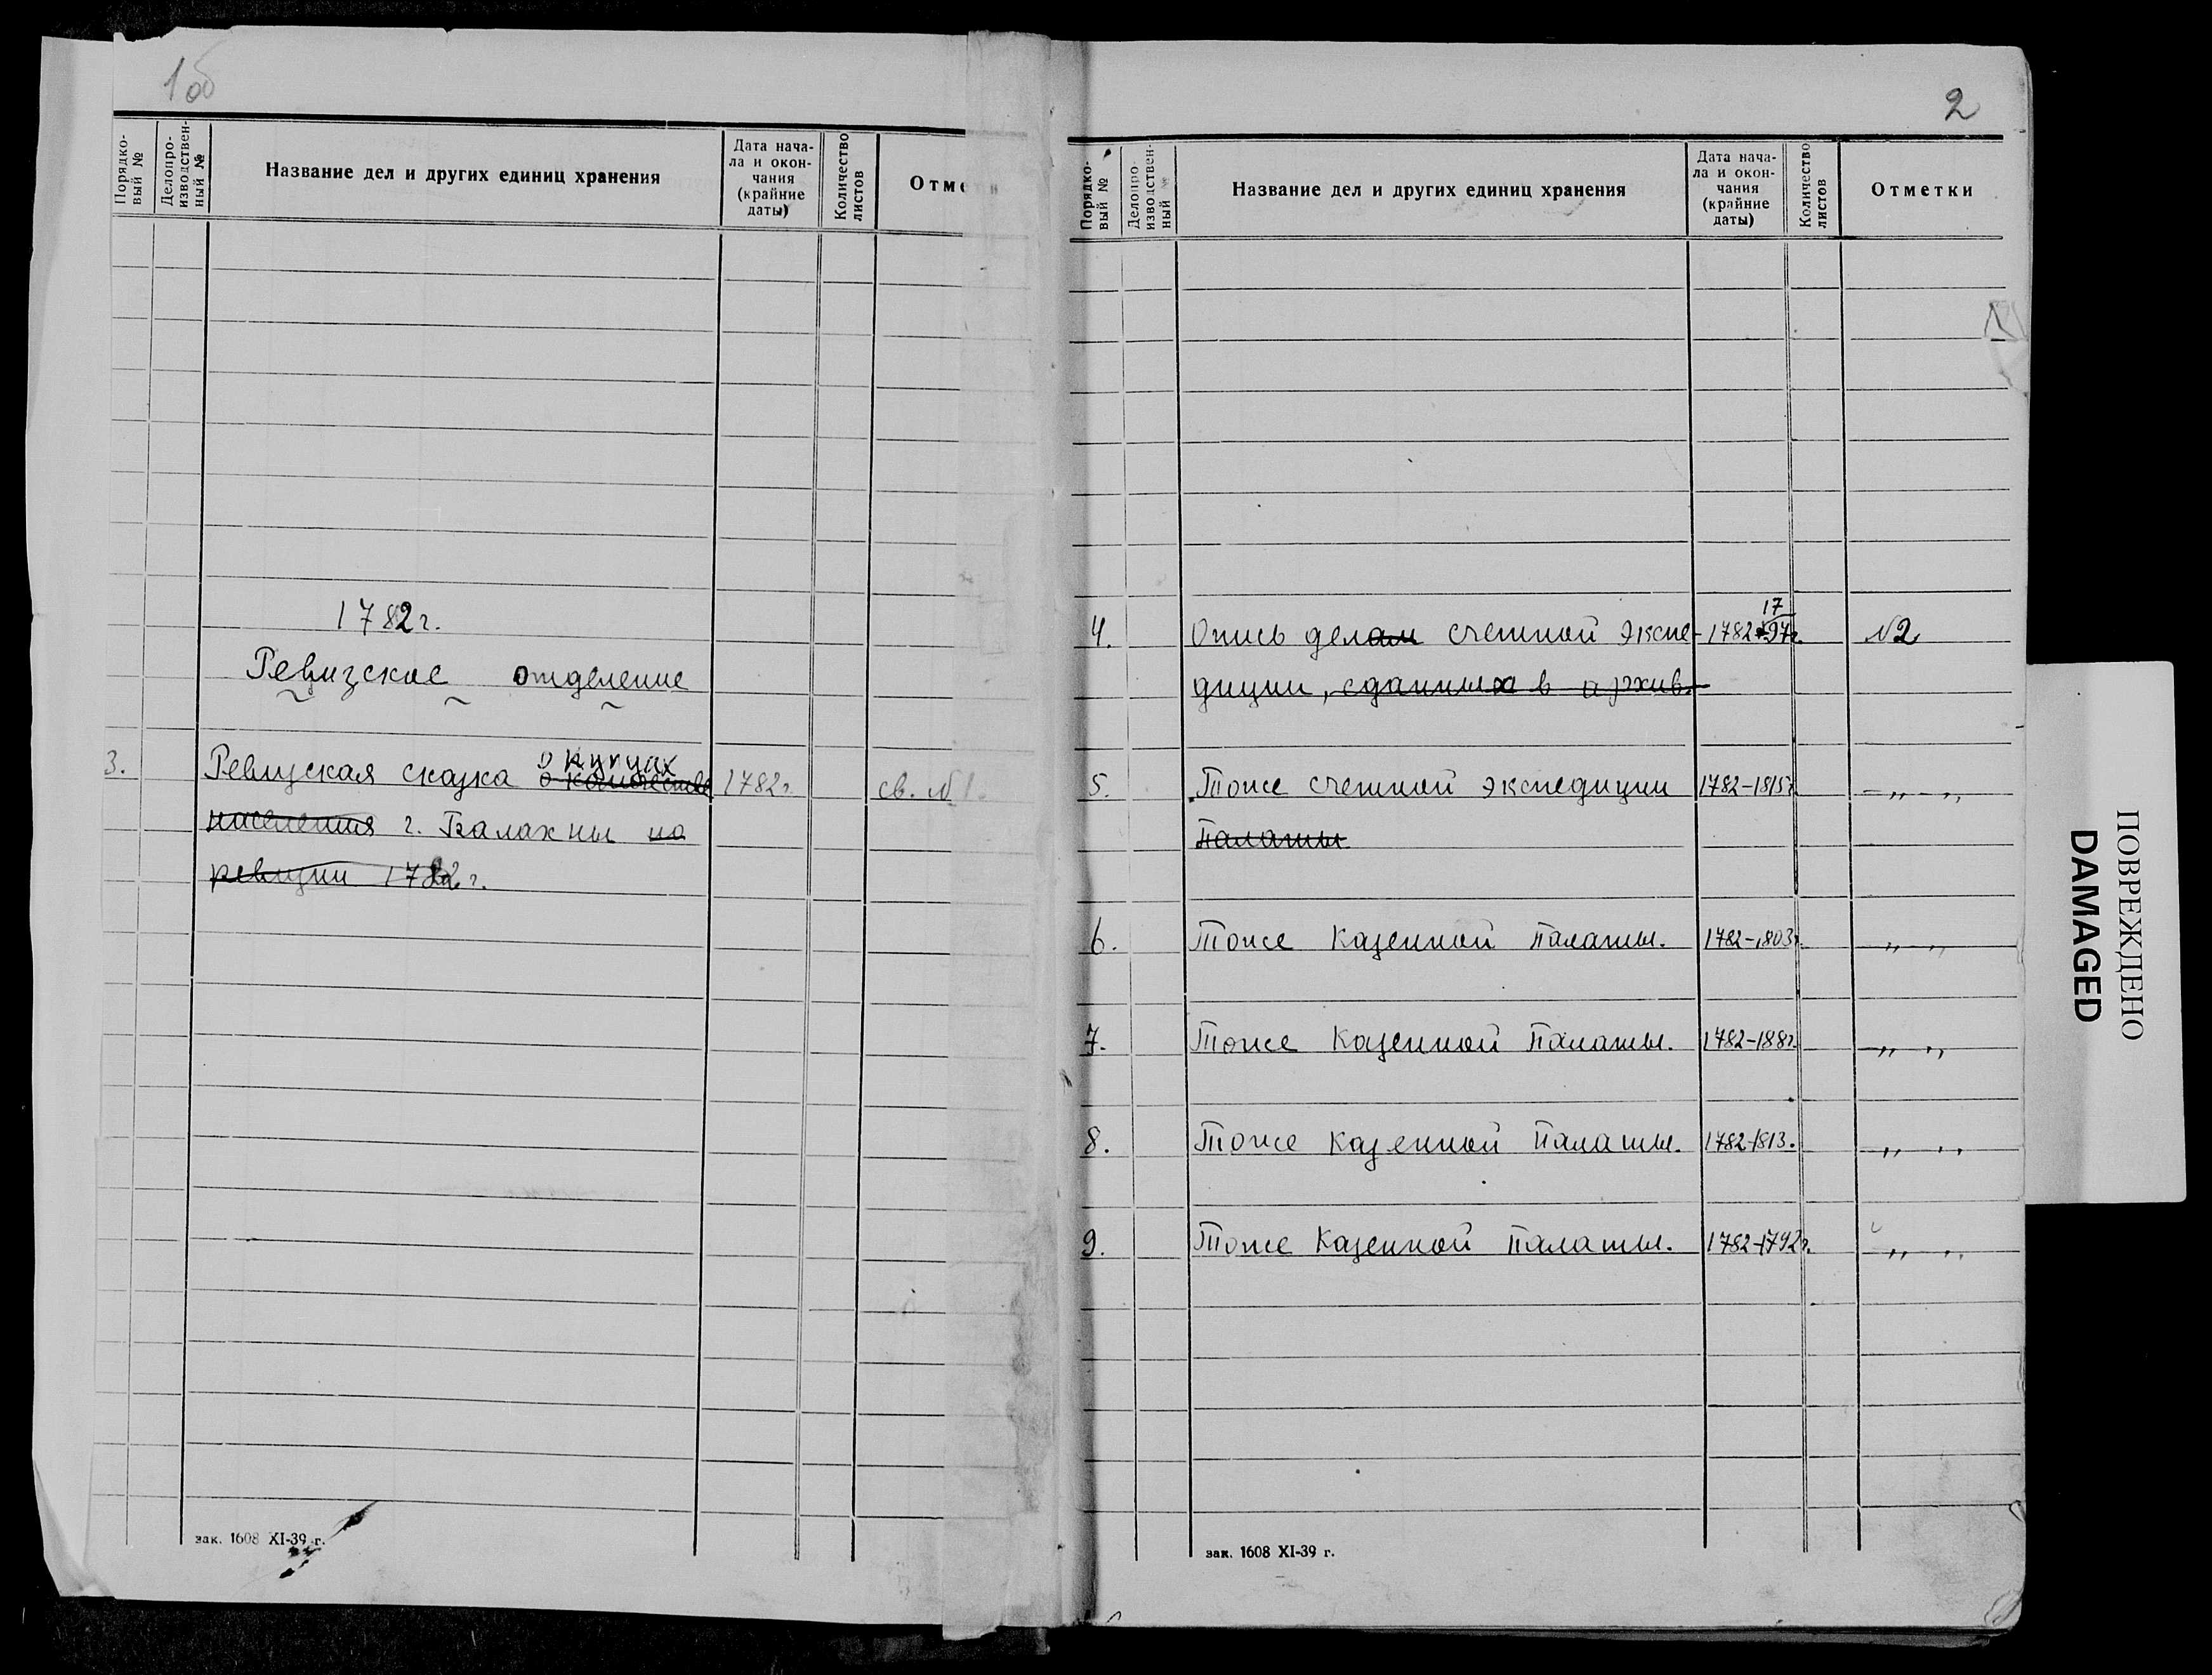 1об
Порядко-
вый №
Делопро-
изводствен-
ный №
Название дел и других единиц хранения
Дата нача-
ла и окон-
чания
(крайние
даты)
Количество
листов
Отме и
1782 г.
Ревизское отделение
о купцах
3. Ревизская сказка о количестве 1782 г. св. №1.
населения г. Балахны по
ревизии 1782 г.
зак. 1608 XI-39 г.
2
Порядко-
вый №
Делопро-
изводствен-
ный №
Название дел и других единиц хранения
Дата нача-
ла и окон-
чания
(крайние
даты)
Количество
листов
Отметки
17
4. Опись делам счетной экспе- 1782-97г. №2
диции, сданных в архив.
5. Тоже счетной экспедиции 1782-1815г. -„-„
Палаты
6. Тоже Казенной Палаты. 1782-1803г. „ „
7. Тоже Казенной Палаты. -„ „
8. Тоже Казенной Палаты. 1782-1813. -„ „
9. Тоже Казенной Палаты. 1782-1792г. „ „
зак. 1608 XI-39 г.
ПОВРЕЖДЕНО
DAMAGED